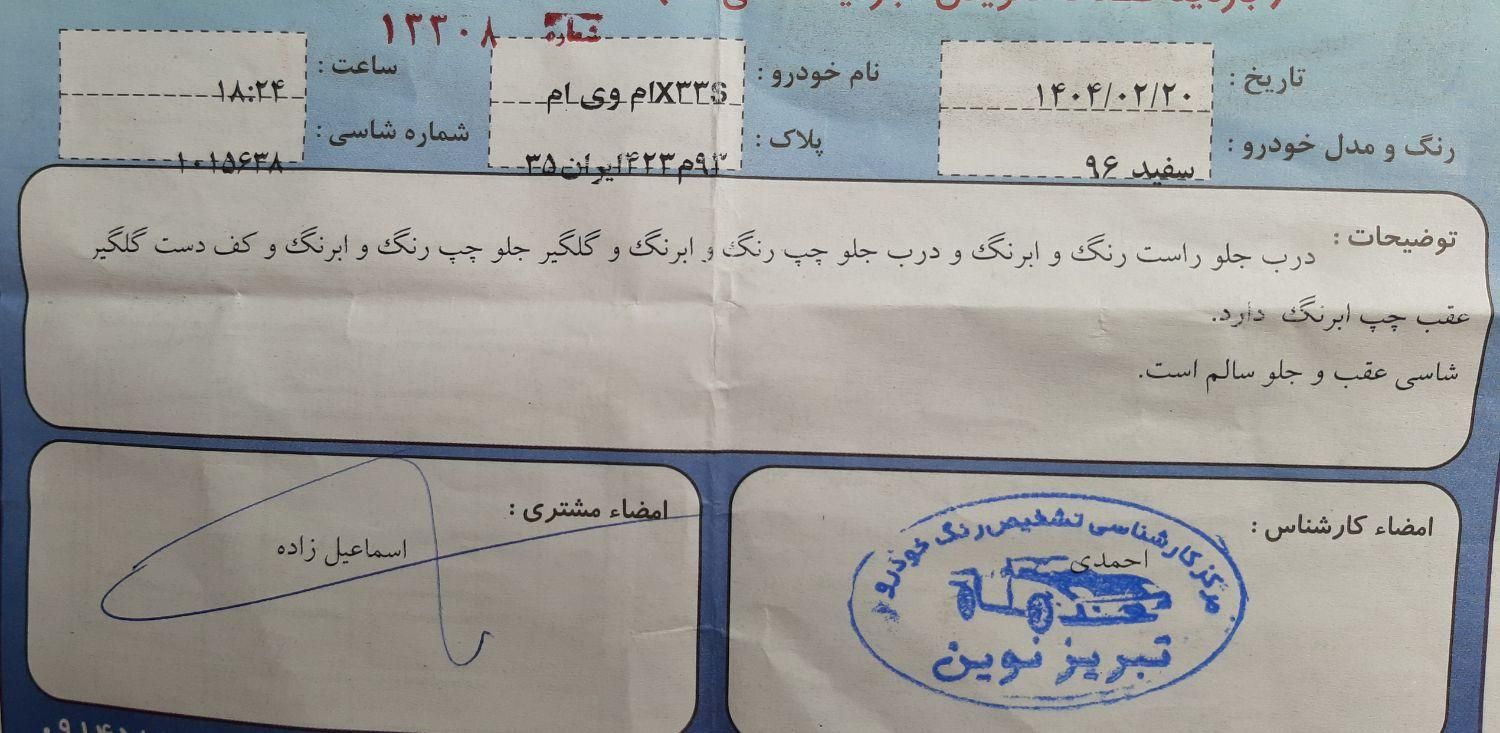 شماره ۱۳۳۰۸
تاریخ : ۱۴۰۴/۰۲/۲۰
نام خودرو : X۳۳Sام وی ام
ساعت : ۱۸:۲۴
رنگ و مدل خودرو : سفید ۹۶
پلاک : م۴۲۳ایران۳۵
شماره شاسی : ۱۰۱۵۶۳۸
توضیحات : درب جلو راست رنگ و ابرنگ و درب جلو چپ رنگ و ابرنگ و گلگیر جلو چپ رنگ و ابرنگ و کف دست گلگیر
عقب چپ ابرنگ دارد.
شاسی عقب و جلو سالم است.
امضاء کارشناس :
احمدی
مرکز کارشناسی تشخیص رنگ خودرو
تبریز نوین
امضاء مشتری :
اسماعیل زاده